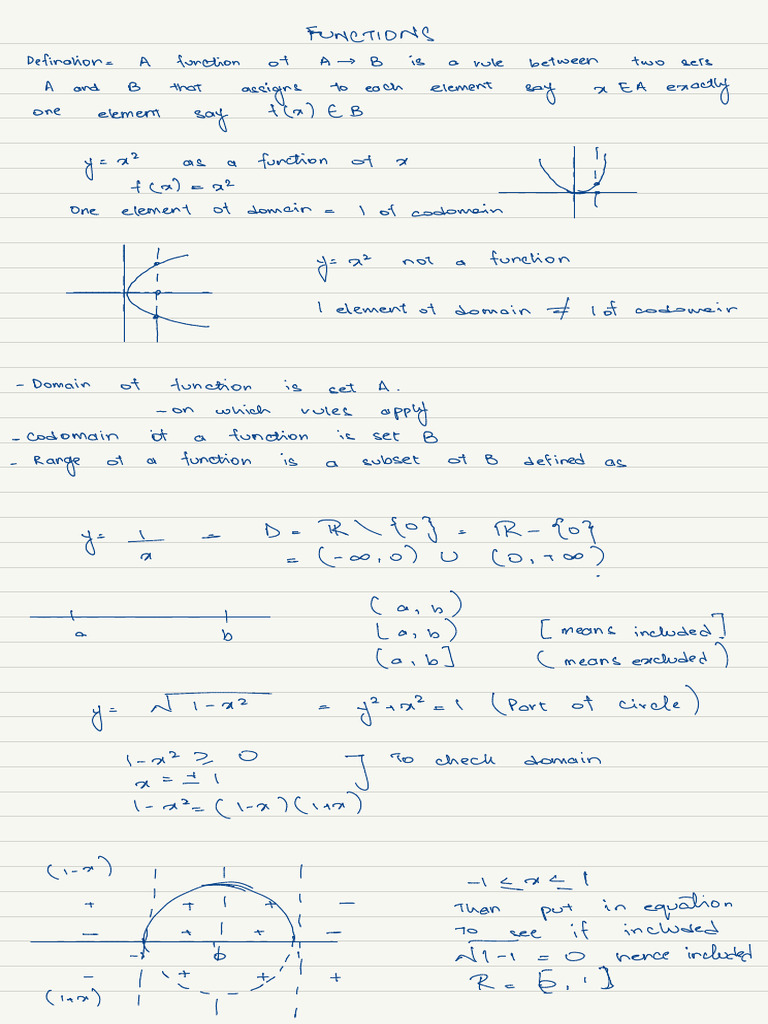 FUNCTIONS
Definition = A function of A → B is a rule between two sets
A and B that assigns to each element say x ∈ A exactly
one element say f(x) ∈ B
y = x² as a function of x
f(x) = x²
One element of domain = 1 of codomain
y = x² not a function
1 element of domain ≠ 1 of codomain
- Domain of function is set A.
- on which rules apply
- Codomain of a function is set B
- Range of a function is a subset of B defined as
y = 1/x = D = ℝ \ {0} = ℝ - {0}
= (-∞, 0) ∪ (0, +∞)
(a, b)
a b [a, b) [means included]
(a, b] (means excluded)
y = √1-x² = y² + x² = 1 (Part of circle)
1-x² ≥ 0
x = ±1 ] To check domain
1-x² = (1-x)(1+x)
(1-x)
-1 ≤ x ≤ 1
+ + + - Then put in equation
- + + - to see if included
-1 0 √1-1 = 0 hence included
- + + + R = [0, 1]
(1+x)